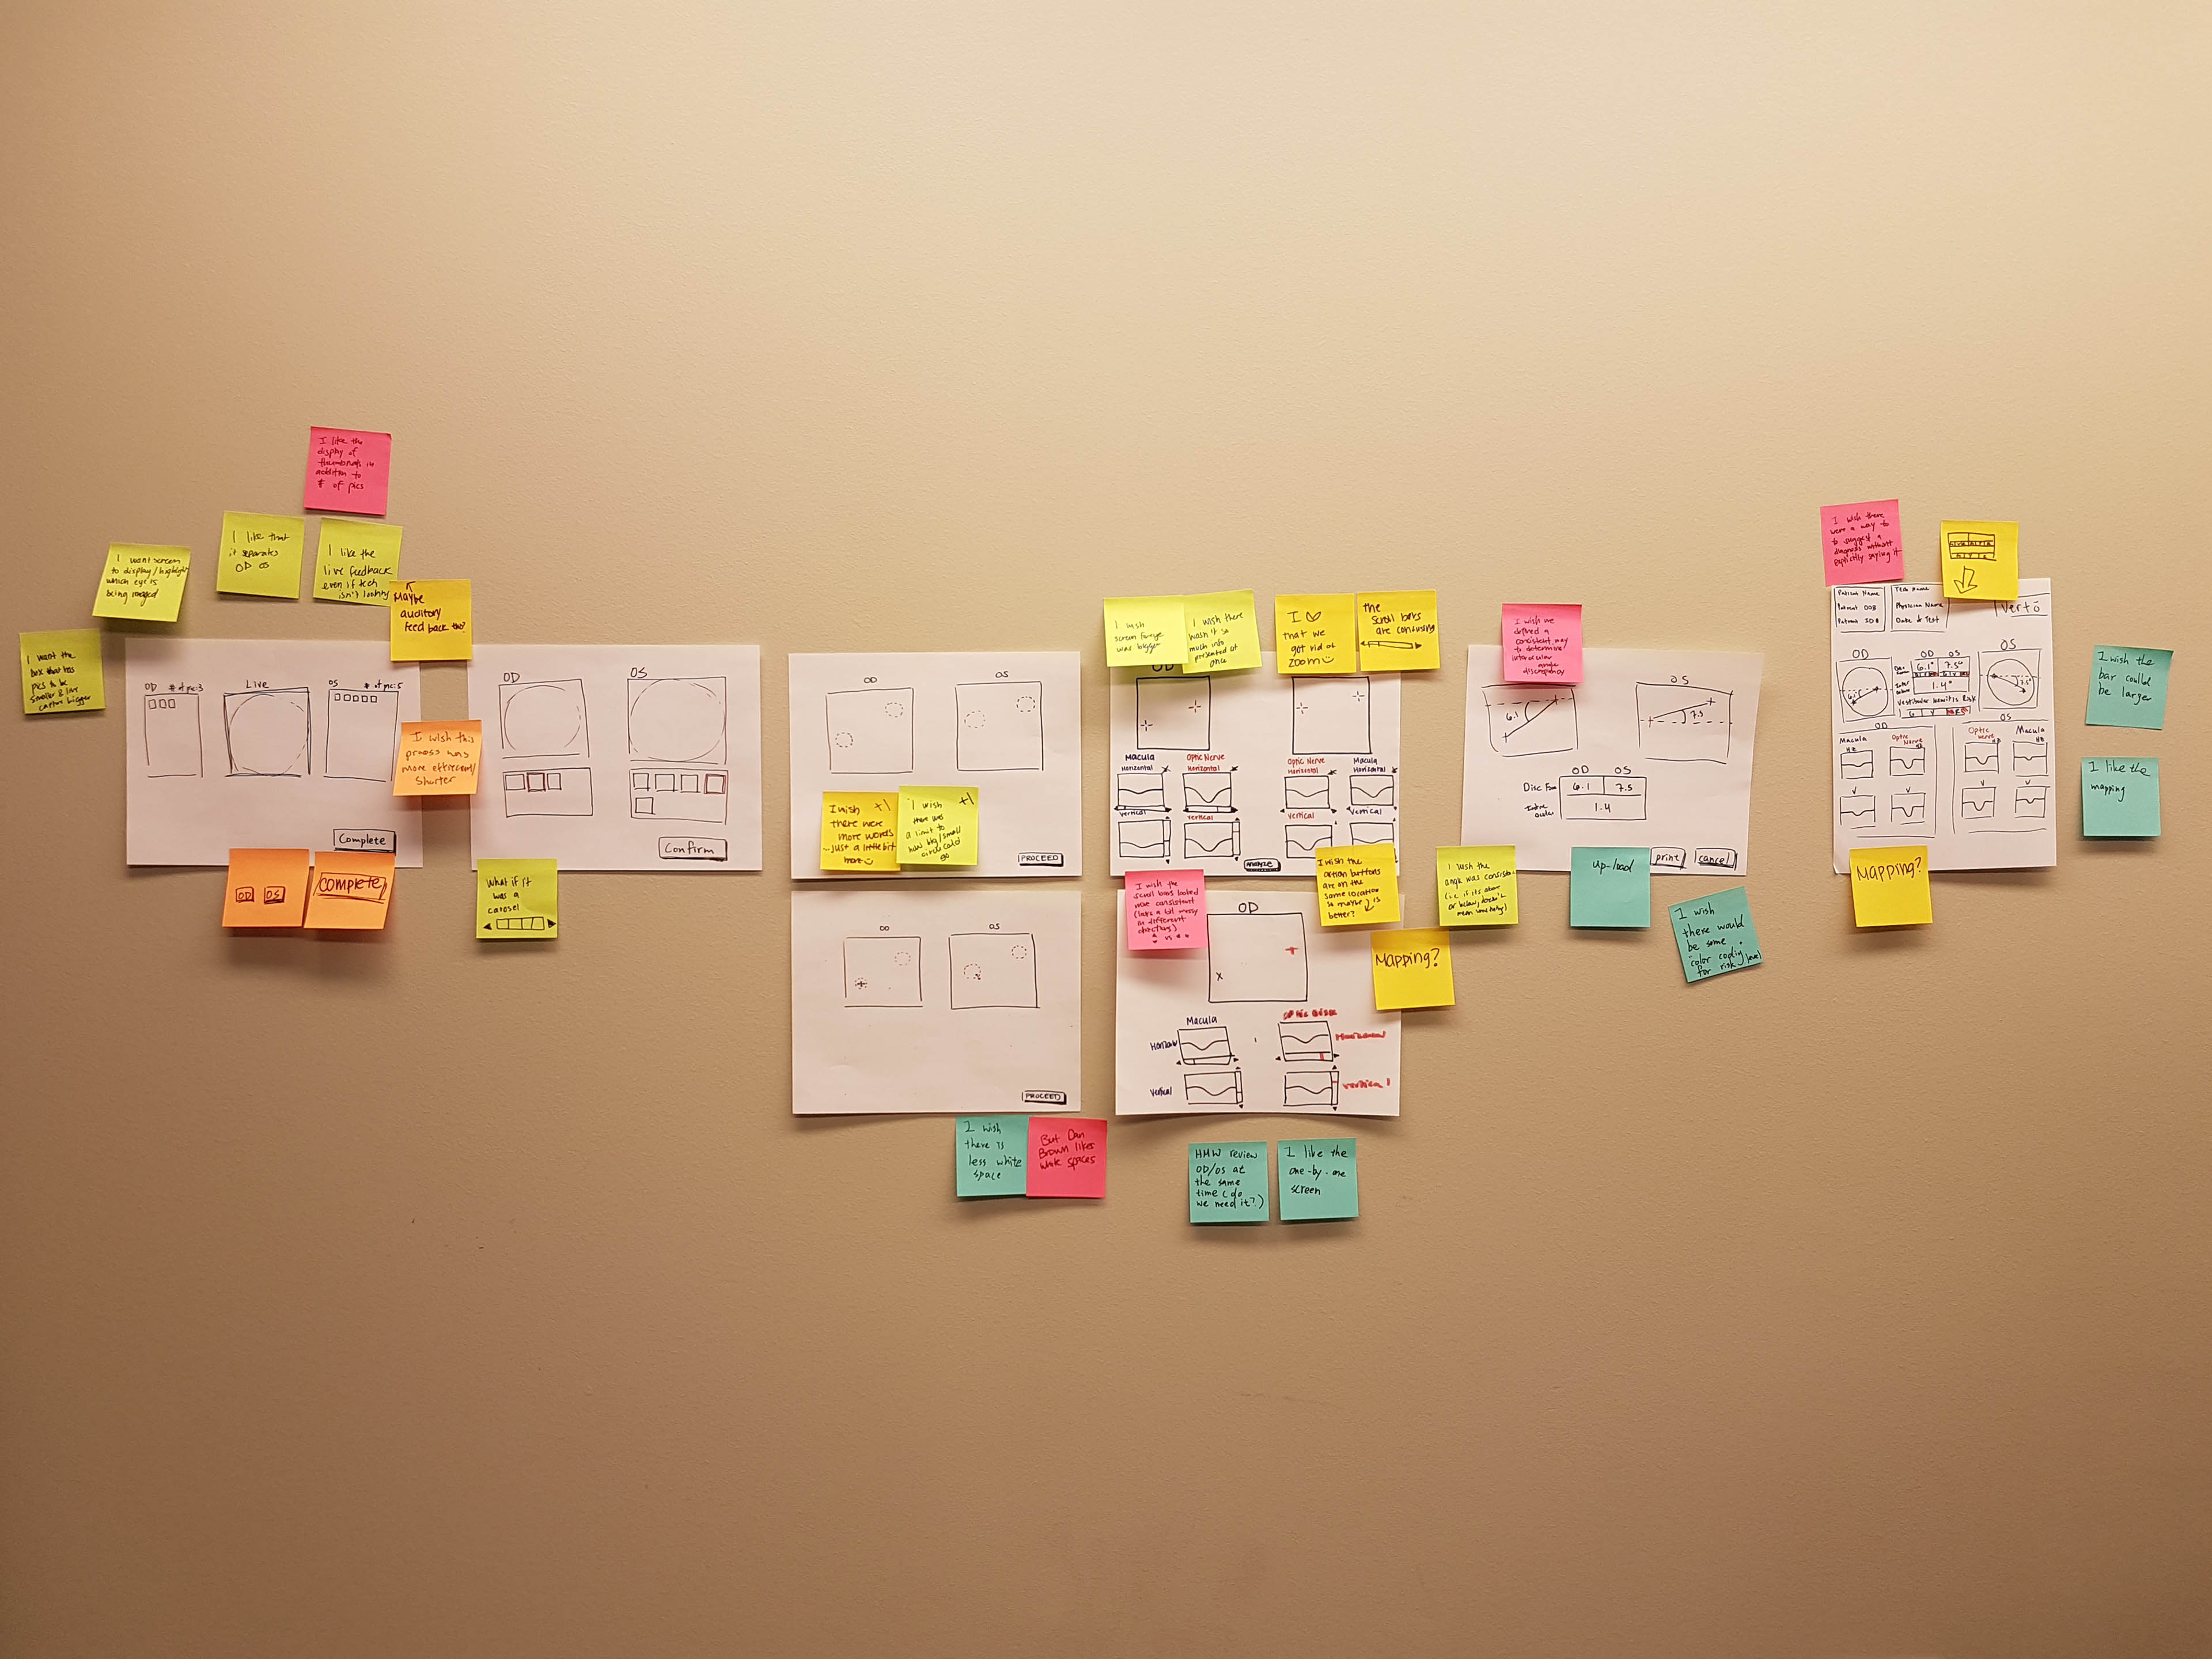 I like the
display of
thumbnails in
addition to
# of pics
I like that
it separates
OD OS
I like the
live feedback
even if tech
isn't looking
I want screen
to display/highlight
which eye is
being imaged
Maybe
auditory
feed back too?
I want the
box that has
pics to be
smaller & live
capture bigger
OD # of pic:3
Live
OS # of pic:5
Complete
I wish this
process was
more efficient/
shorter
OD OS
Complete
OD
OS
Confirm
What if it
was a
carosel
OD
OS
I wish +1
there were
more words
~ just a little bit
more
I wish +1
there was
a limit to
how big/small
circle could
go
PROCEED
OD
OS
PROCEED
I wish
there is
less white
space
But Dan
Brown likes
white spaces
I wish
screen
was bigger
I wish there
wasn't so
much info
presented at
once
I
that we
got rid of
zoom
the
scroll bars
are confusing
OD
Macula
Horizontal
Optic Nerve
Horizontal
Optic Nerve
Horizontal
Macula
Horizontal
Vertical
Vertical
Vertical
Vertical
I wish the
scroll bars looked
more consistent
(looks a bit messy
in different
directions)
I wish the
action buttons
are on the
same location
so maybe is
better?
Mapping?
OD
Macula
Horizontal
Vertical
Vertical
HMW review
OD/OS at
the same
time (do
we need it?)
I like the
one-by-one
screen
I wish we
defined a
consistent way
to determine
interocular
angle
discrepancy
OS
6.1
7.5
OD OS
Disc Fov
6.1 7.5
1.4
print
cancel
I wish the
angle was consistent
(i.e. if its above
or below, doesn't
mean
up-load
I wish
there would
be some
color coding
for risk level
I wish there
were a way to
to suggest a
diagnosis without
explicitly saying it
Patient Name
Patient DOB
Patient
Test Name
Physician Name
Date of Test
Verto
OD
OD OS
OS
6.1° 7.5°
1.4°
Risk
OD
OS
Macula
Optic Nerve
Optic
nerve
Macula
Hz
V
V
V
V
Mapping?
I wish the
bar could
be larger
I like the
mapping